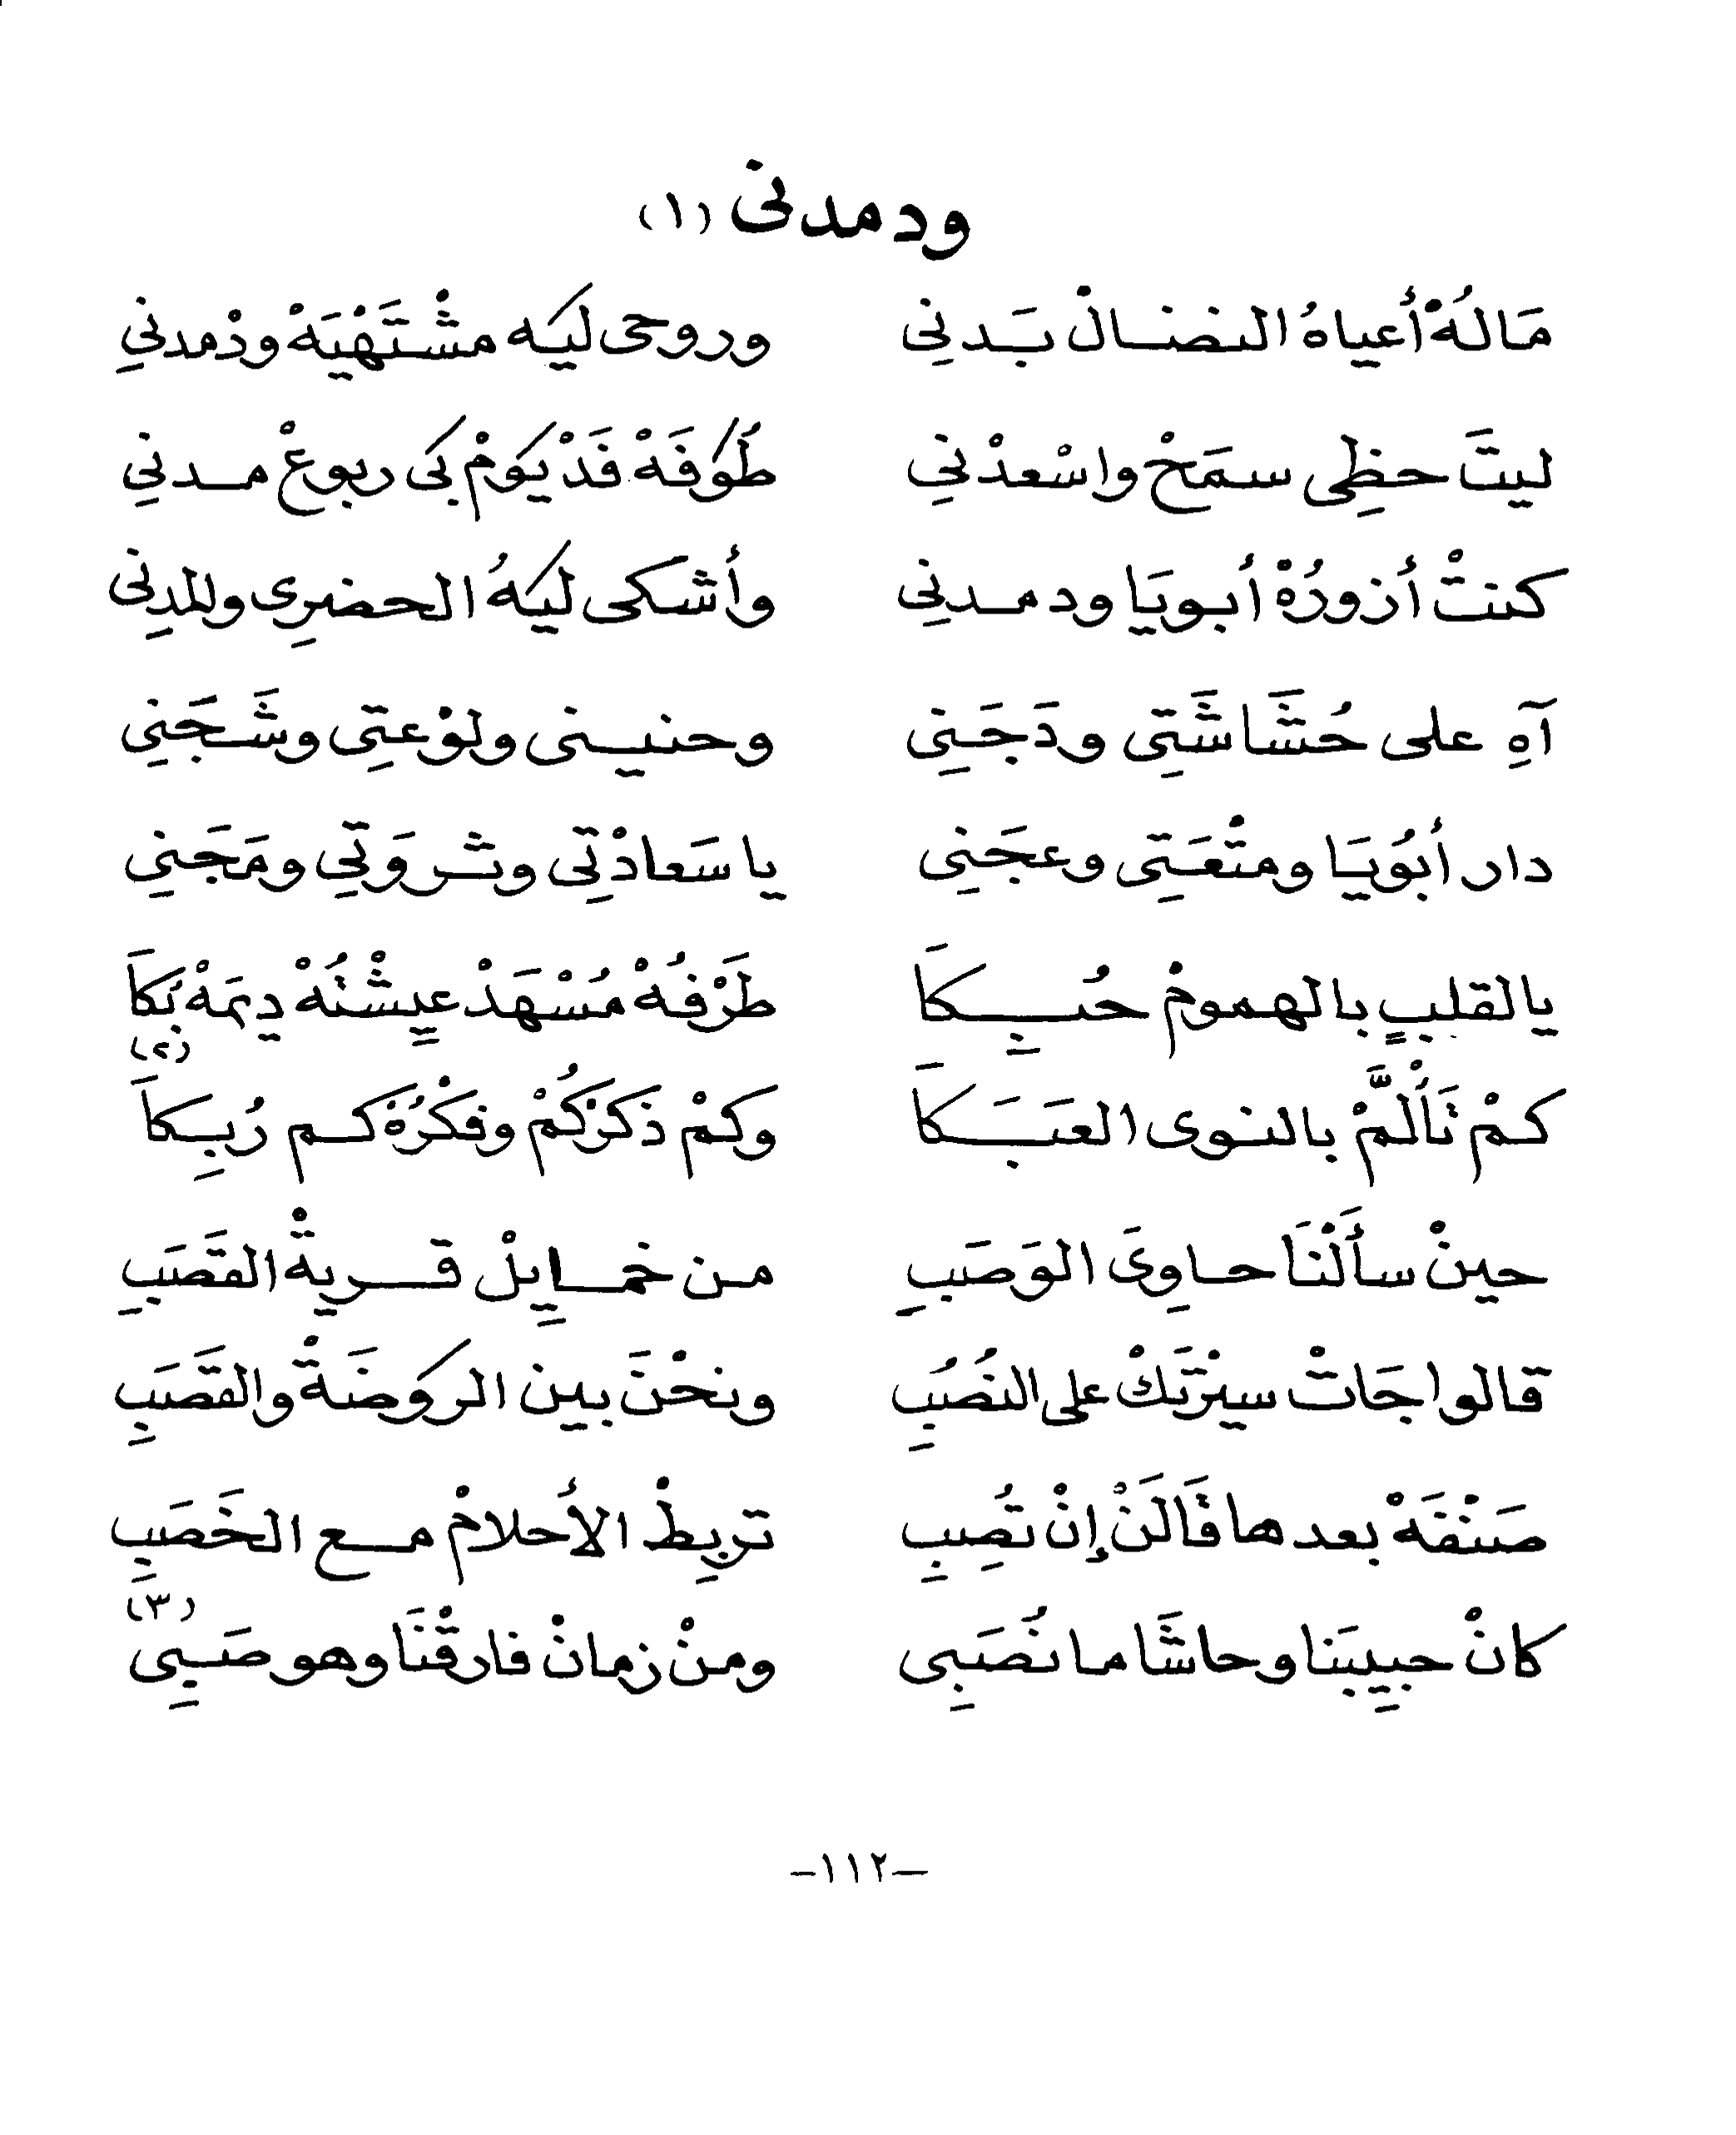 ود مدنى (١)
مَالُهْ أعياهُ النضالْ بَدنِى وروحى ليَه مشْتَهْيَهْ ودْمدنىِ
ليتَ حظِى سمَحْ واسْعدْنىِ طُوَفَهْ فَدْ يَومْ بَى ربوعْ مدنىِ
كنتْ أزورُهْ أبويَا ود مدنىِ وأشكى ليَهُ الحضرِى والمدِنى
آهِ على حُشَاشَتِى ودَجَنِى وحنينى ولوْعتِى وشَجَنِى
دار أبُويَا ومتْعَتِى وعجَنِى يا سَعادْتِى وثروَتِي ومَجَنِى
يالقليبٍ بالهمومْ حُبِكَا طَرْفُهْ مُسْهَدْ عيِشْتُهْ ديِمَهْ بُكَا (٢)
كمْ تَألَّمْ بالنوى العَبَكَا وكمْ ذَكَرْكُمْ وفكْرُهْ كم رُبِكَا
حينْ سألْنَا حاوِىَ الوَصَبِ من خمايِلْ قريةْ القَصَبِ
قالوا جَاتْ سينْتَكْ على النُصُبِ ونحْنَ بين الرَوضَةْ والقَصَبِ
صَنْقَهْ بعدها قَالَنْ إنْ تُصِبِ تربِطْ الأحلامْ مع الخَصَبِ
كانْ حبيِبَنا وحاشَا ما نُصَبِى ومنْ زمانْ فارقْنَا وهو صَبِى (٣)
-١١٢-